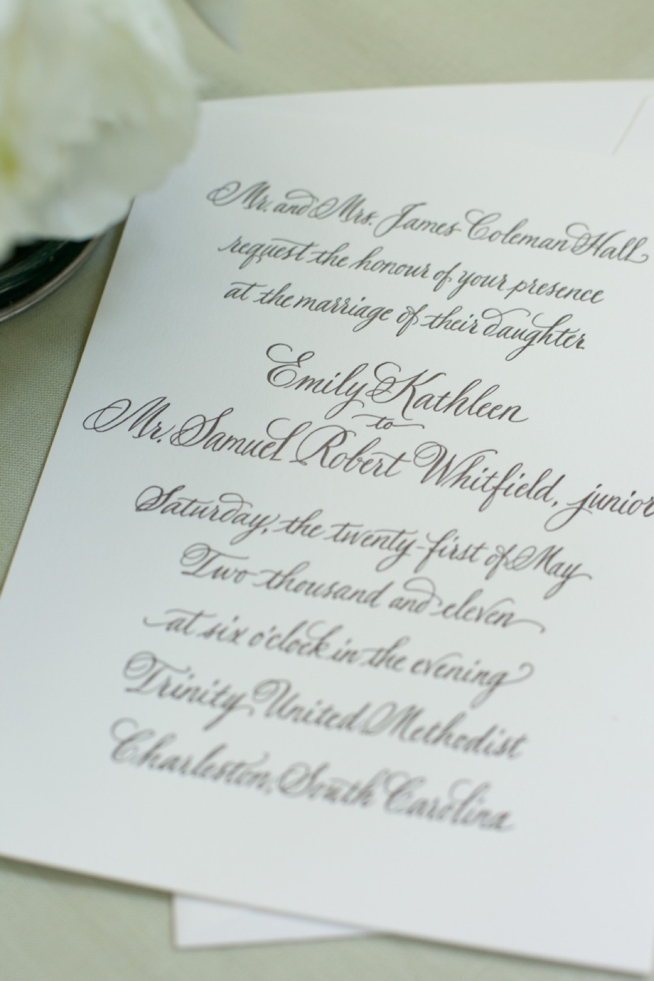 Mr. and Mrs. James Coleman Hall
request the honour of your presence
at the marriage of their daughter
Emily Kathleen
to
Mr. Samuel Robert Whitfield, junior
Saturday, the twenty-first of May
Two thousand and eleven
at six o'clock in the evening
Trinity United Methodist
Charleston, South Carolina